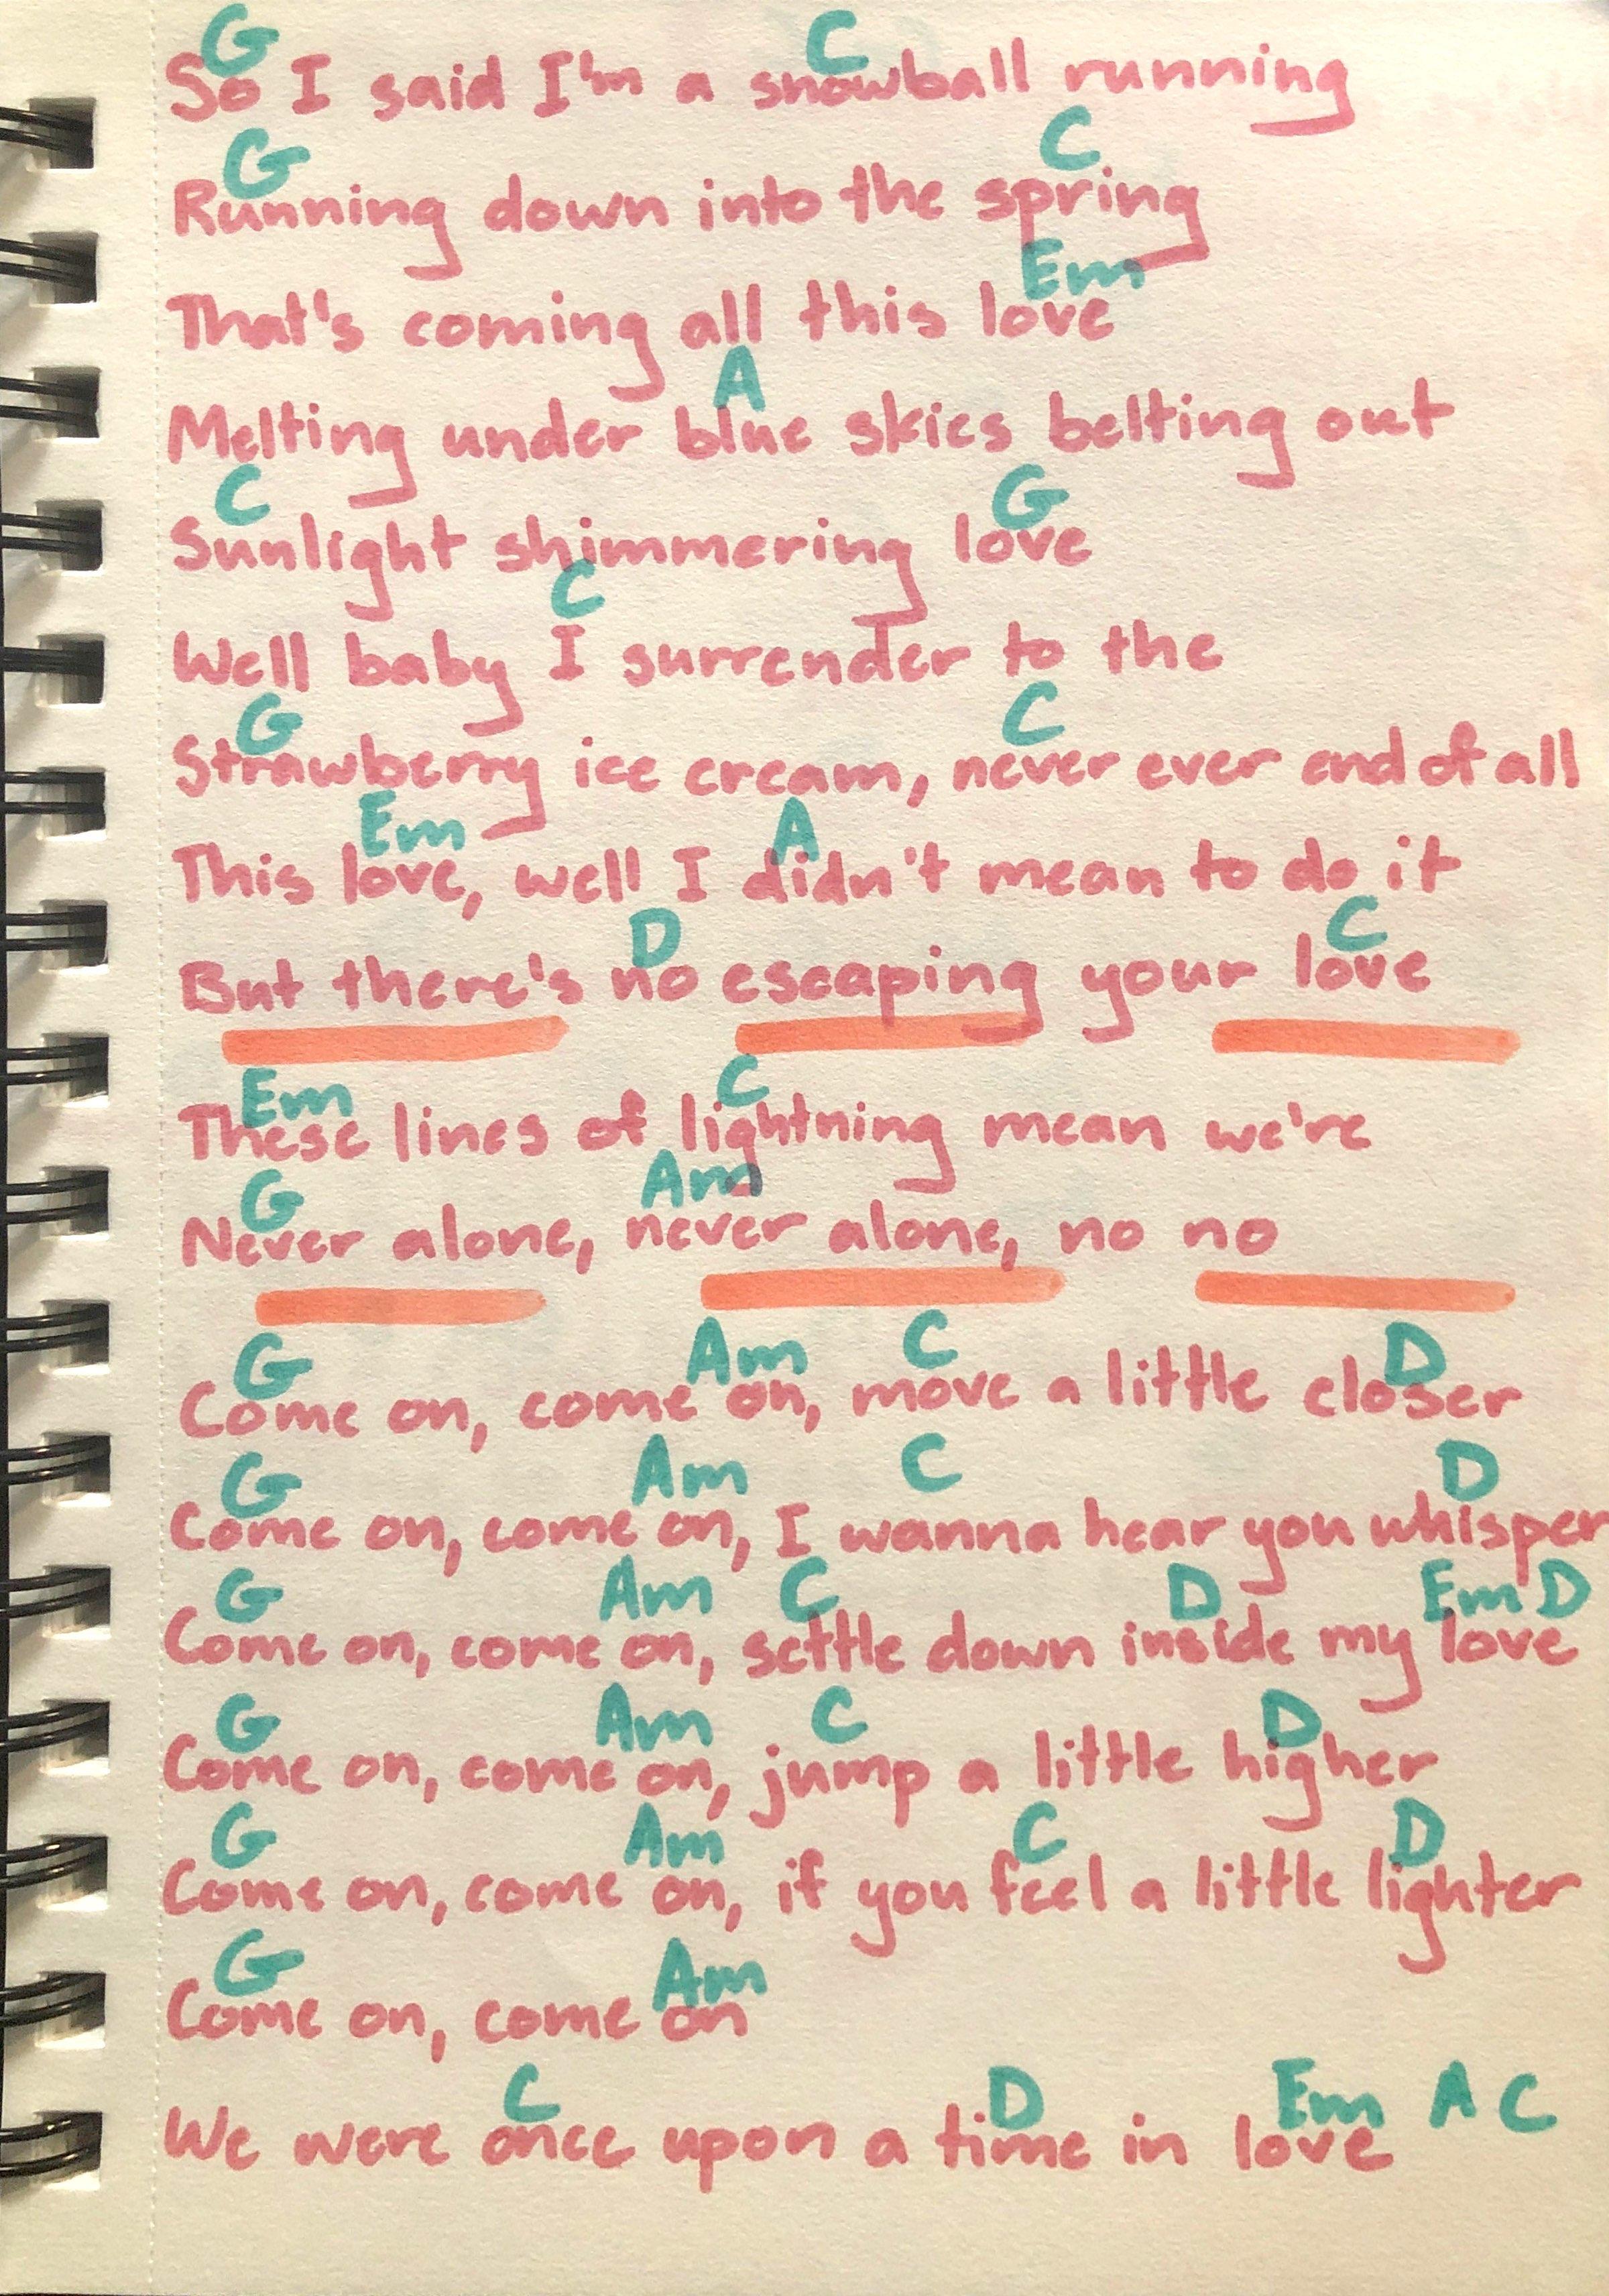 G C
So I said I'm a snowball running
G C
Running down into the spring
Em
That's coming all this love
A
Melting under blue skies belting out
C G
Sunlight shimmering love
C
Well baby I surrender to the
G C
Strawberry ice cream, never ever end of all
Em A
This love, well I didn't mean to do it
D C
But there's no escaping your love
Em C
These lines of lightning mean we're
G Am
Never alone, never alone, no no
G Am C D
Come on, come on, move a little closer
G Am C D
Come on, come on, I wanna hear you whisper
G Am C D Em D
Come on, come on, settle down inside my love
G Am C D
Come on, come on, jump a little higher
G Am C D
Come on, come on, if you feel a little lighter
G Am
Come on, come on
C D Em A C
We were once upon a time in love